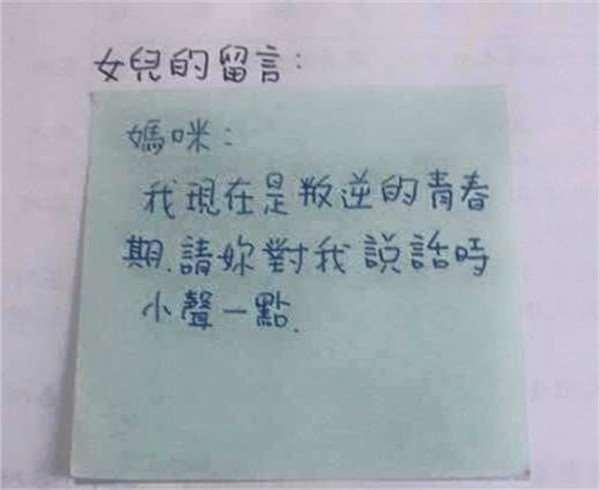 女兒的留言：
媽咪：
我現在是叛逆的青春
期.請妳對我說話時
小聲一點.